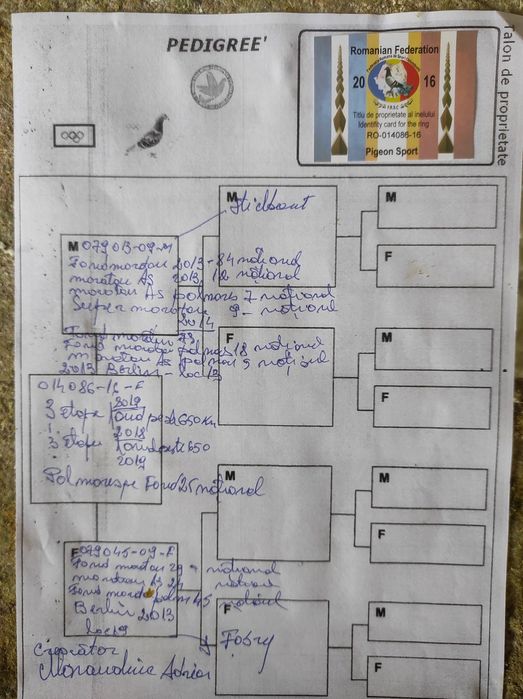 Talon de proprietate
PEDIGREE'
Romanian Federation
20 16
Titlu de proprietate al inelului
Identity card for the ring
RO-014086-16
Pigeon Sport
M
M
F
M 079013-09-M
Fond maraton 2013-84 național
maraton AS 2013, 12 național
maraton AS palmares 7 național
Super maraton 9 - național
2014
F
Fond maraton 23
Fond maraton palmares 18 național
maraton AS palmares 9 național
2013 Berlin - loc 13
M
F
014086-16-F
3 Etape Fond peste 650 km
2019
3 Etape Fond peste 650
2018
2019
Palmares pe Fond 25 național
M
M
F
F 079045-09-F
Fond maraton 29 - național
maraton AS 24 național
Fond maraton palm 45 național
Berlin 2013
loc 19
F
Fabry
M
F
crescător
Adrian